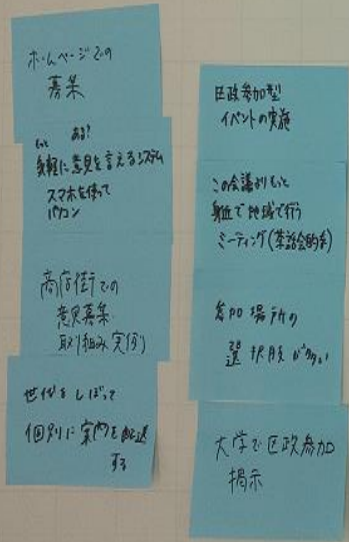 ホームページでの
募集
ある?
もっと
気軽に意見を言えるシステム
スマホを使って
パソコン
商店街での
意見募集
取り組み実例
世代をしぼって
個別に案内を配送
する
区政参加型
イベントの実施
この会議よりもっと
身近で地域で行う
ミーティング(茶話会的な)
参加場所の
選択肢が少ない
大学で区政参加
掲示